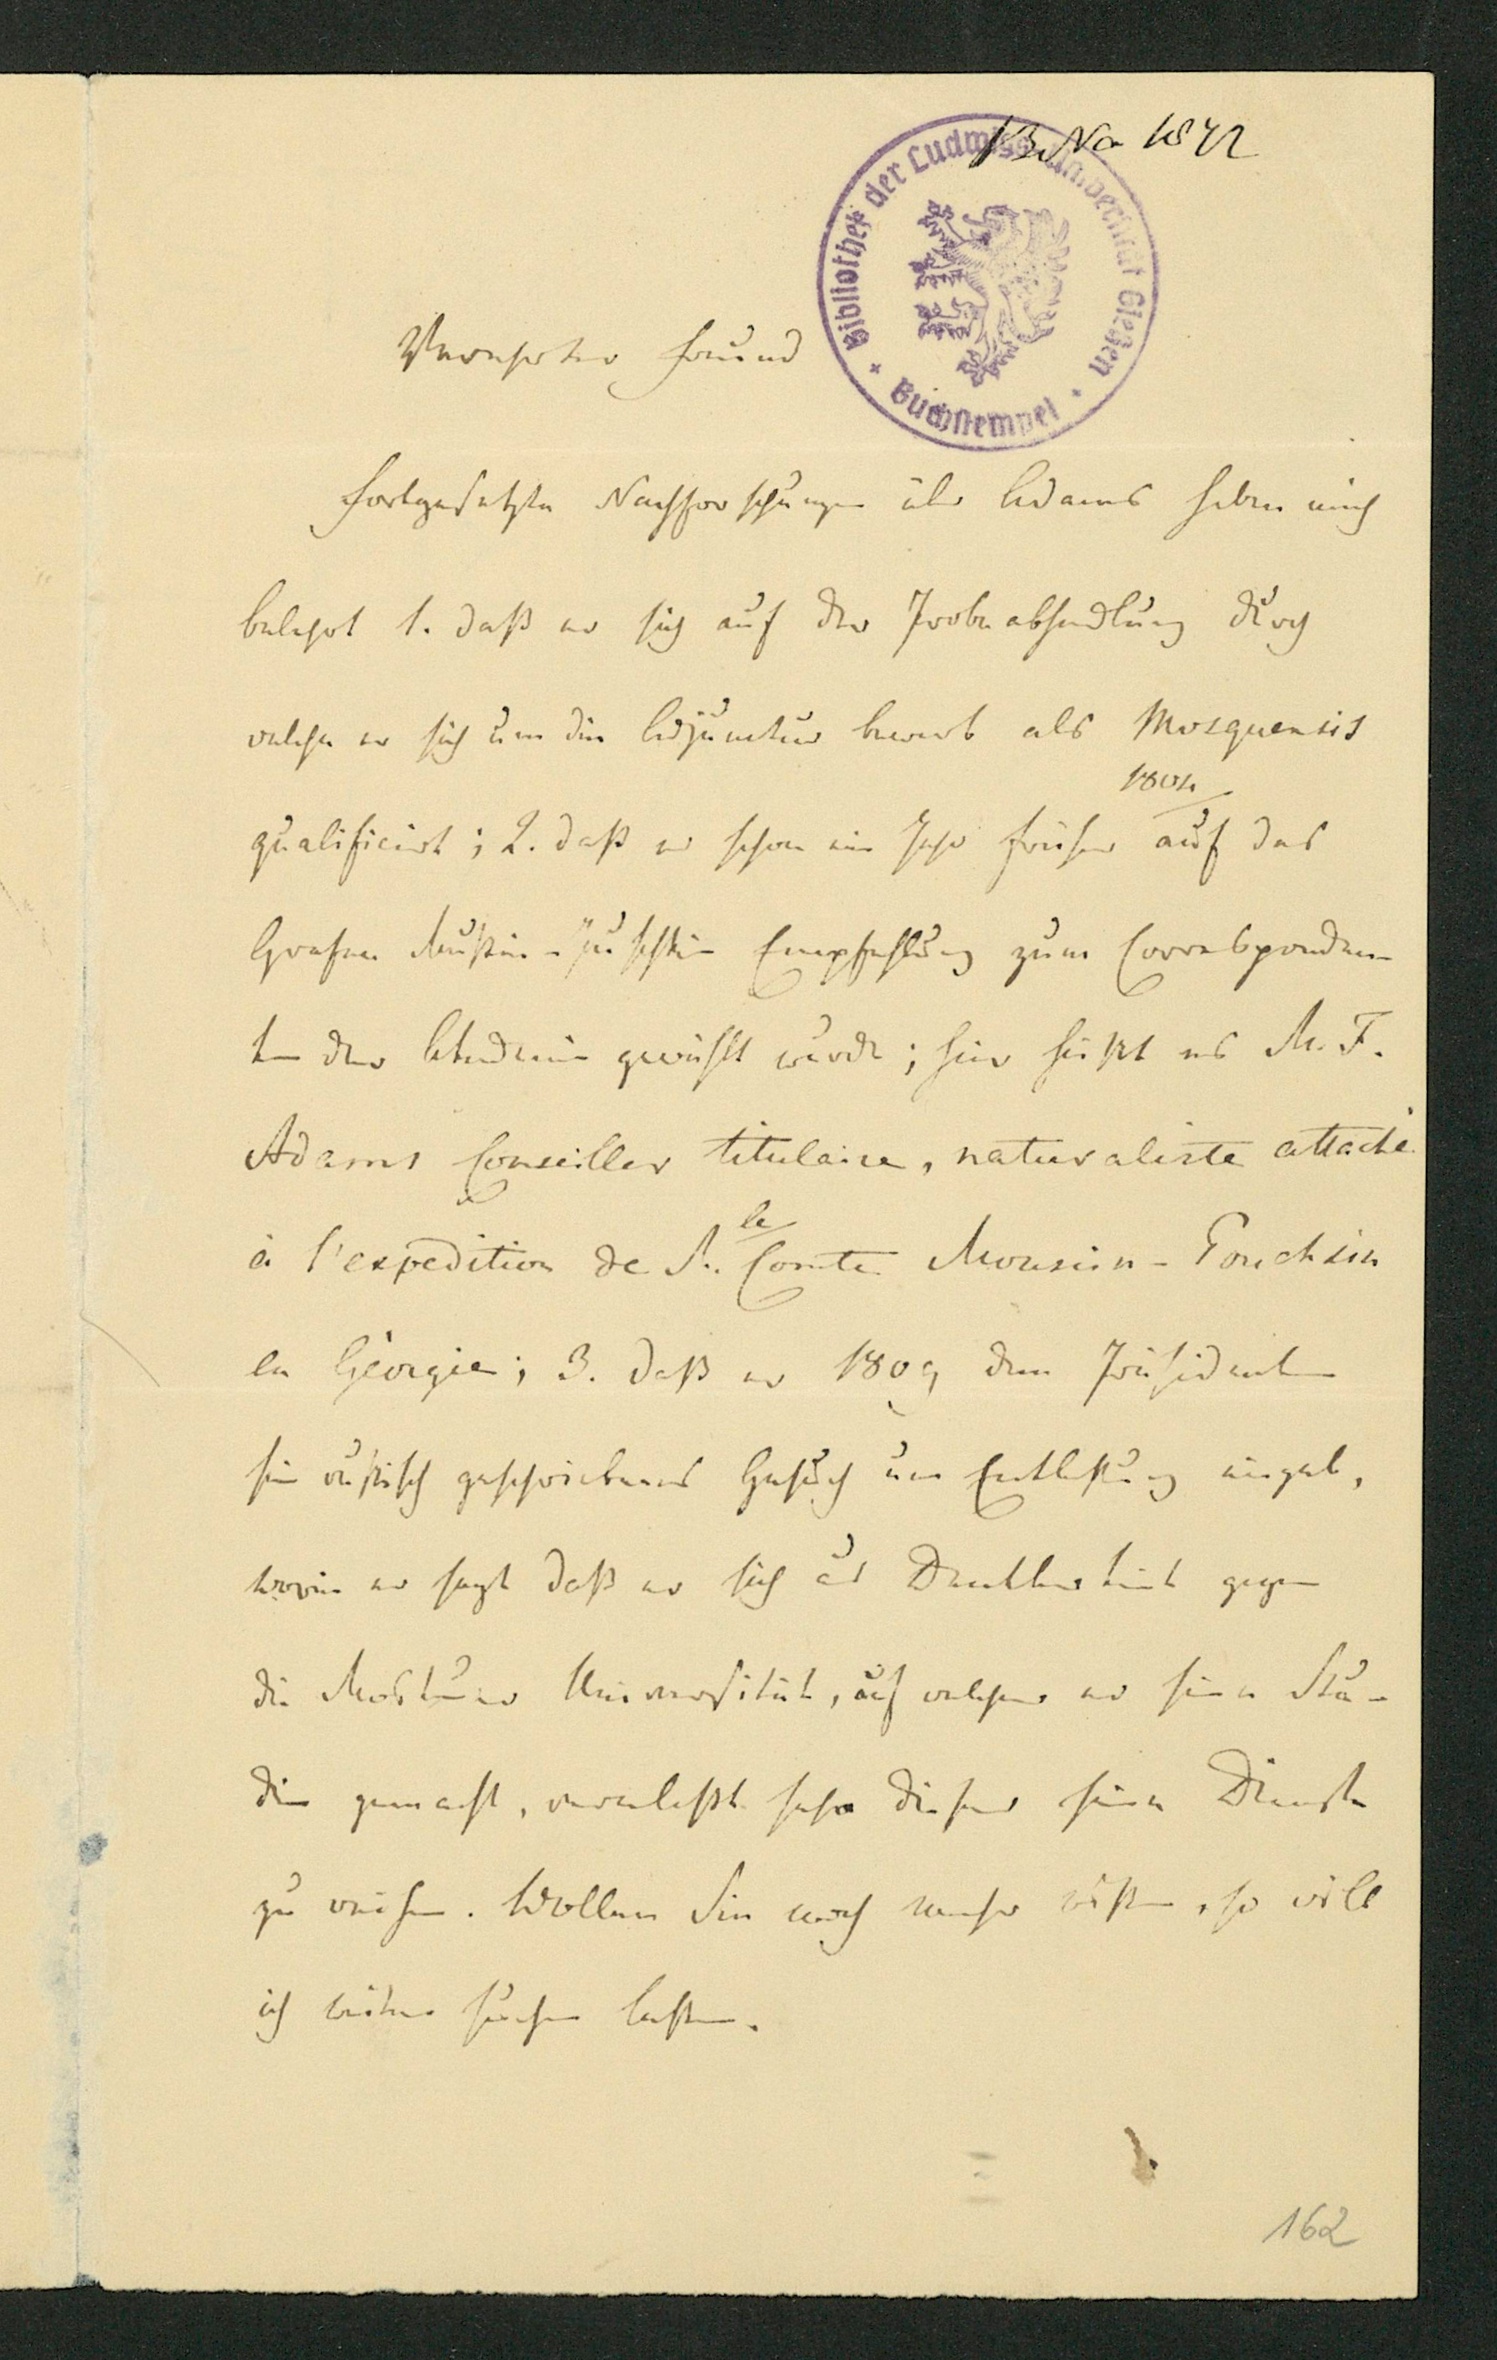 13 No 1872
Bibliothek der Ludwigs-Universität Gießen
Buchstempel
Verehrter Freund
Fortgesetzte Nachforschungen über Adams haben mich
belehrt 1. daß er sich auf der Probeabhandlung durch
welche er sich um die Adjunctur bewarb als Mosquensis
1804
qualificirt; 2. daß er schon ein Jahr früher auf des
Grafen Mußin-Puschkin Empfehlung zum Corresponden-
ten der Akademie gewählt wurde; hier heißt es M. F.
Adams Conseiller titulaire, naturaliste attaché
le
à l'expedition de M. Comte Moussin-Pouchkin
en Géorgie; 3. daß er 1809 dem Präsidenten
sein rußisch geschriebenes Gesuch um Entlaßung eingab,
worin er sagt daß er sich aus Dankbarkeit gegen
die Moskauer Universität, auf welcher er seine Stu-
dien gemacht, veranlaßt sehe dieser seine Dienste
zu weihen. Wollen Sie noch mehr wißen, so will
ich weiter suchen laßen.
162